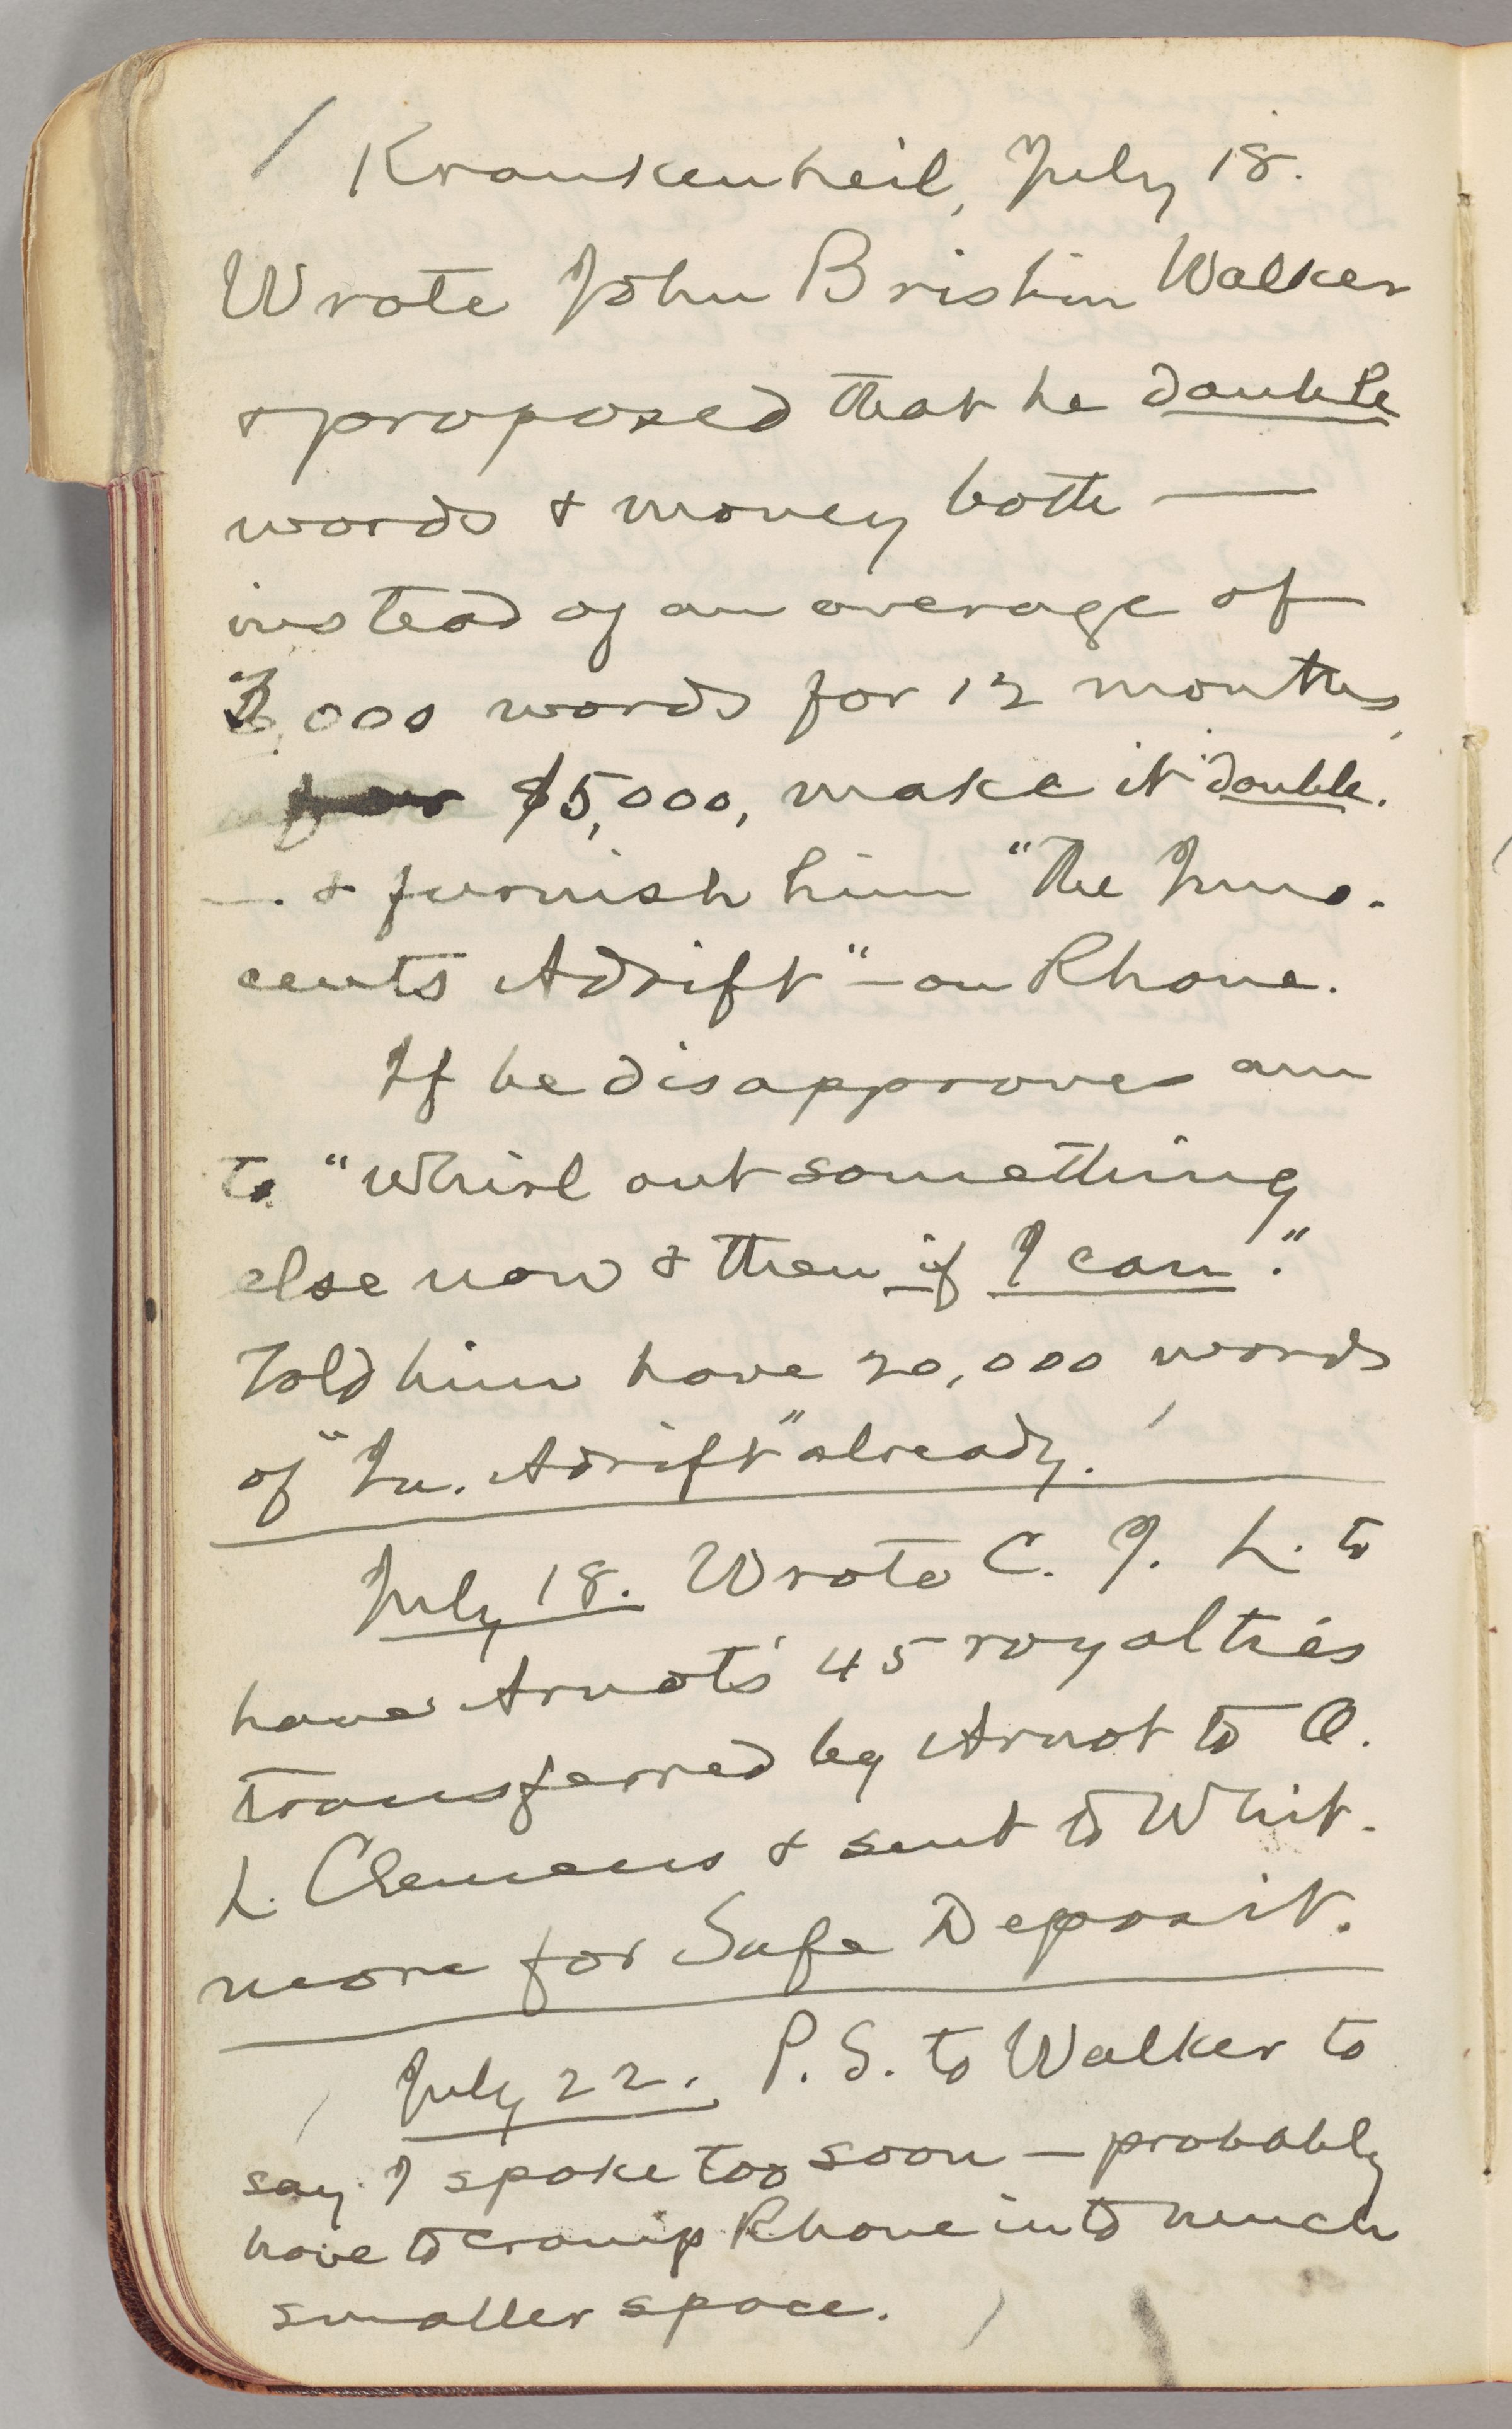 Krankenheil, July 18.
Wrote John Brisbin Walker
& proposed that he double
words & money both —
instead of an average of
3,000 words for 12 months,
$5,000, make it double.
—. & furnish him "The Inno-
cents Adrift" — on Rhone.
If he disapproves am
to "whirl out something
else now & then if I can."
Told him have 20,000 words
of "In. Adrift" already.
July 18. Wrote C. J. L. to
have Arnot's 45 royalties
transferred by Arnot to O.
L. Clemens & sent to Whit-
more for Safe Deposit.
July 22. P.S. to Walker to
say I spoke too soon — probably
have to cramp Rhone into much
smaller space.